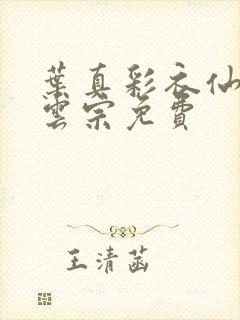 葉真彩衣仙
雲宗免費
王清菡